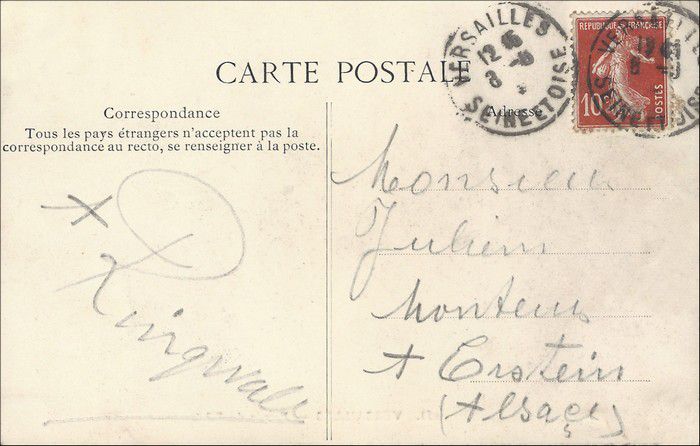 CARTE POSTALE
VERSAILLES
12 45
8 -8
SEINE ET OISE
REPUBLIQUE FRANÇAISE
10
POSTES
VERSAILLES
SEINE ET OISE
Correspondance
Tous les pays étrangers n'acceptent pas la
correspondance au recto, se renseigner à la poste.
Adresse
Monsieur
Julien
A Erstein
(Alsace)